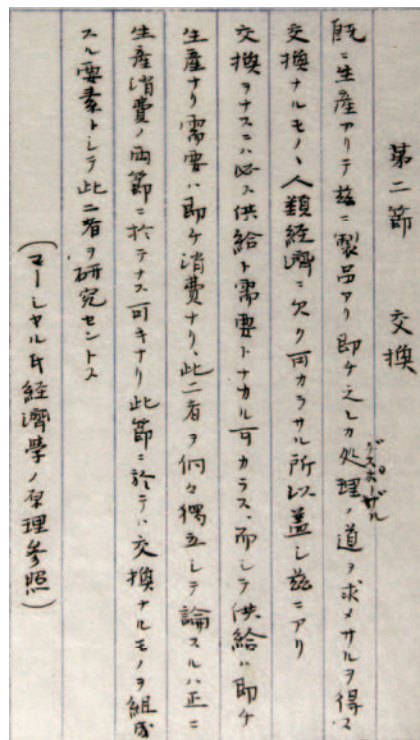 第二節　交換
既ニ生産アリテ茲ニ製品アリ即チ之レカ処理ノ道ヲ求メサルヲ得ス
デスポーザル
交換ナルモノヽ人類経済ニ欠ク可カラサル所以蓋シ茲ニアリ
交換ヲナスニハ必ス供給ト需要トナカル可カラス、而シテ供給ハ即チ
生産ナリ需要ハ即チ消費ナリ、此二者ヲ個々独立シテ論スルハ正ニ
生産消費ノ両節ニ於テナス可キナリ此節ニ於テハ交換ナルモノヲ組成
スル要素トシテ此二者ヲ研究セントス
（マーシャル氏経済學ノ原理参照）